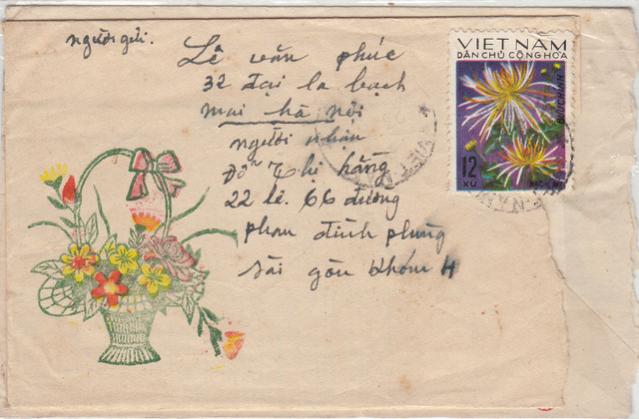 người gửi.
Lê văn phúc
32 đại la bạch
mai hà nội
người nhận
Đỗ Thị hằng
22 lê. 66 đường
phan đình phùng
sài gòn khóm 4
VIET NAM
DÂN CHỦ CỘNG HÒA
12
XU